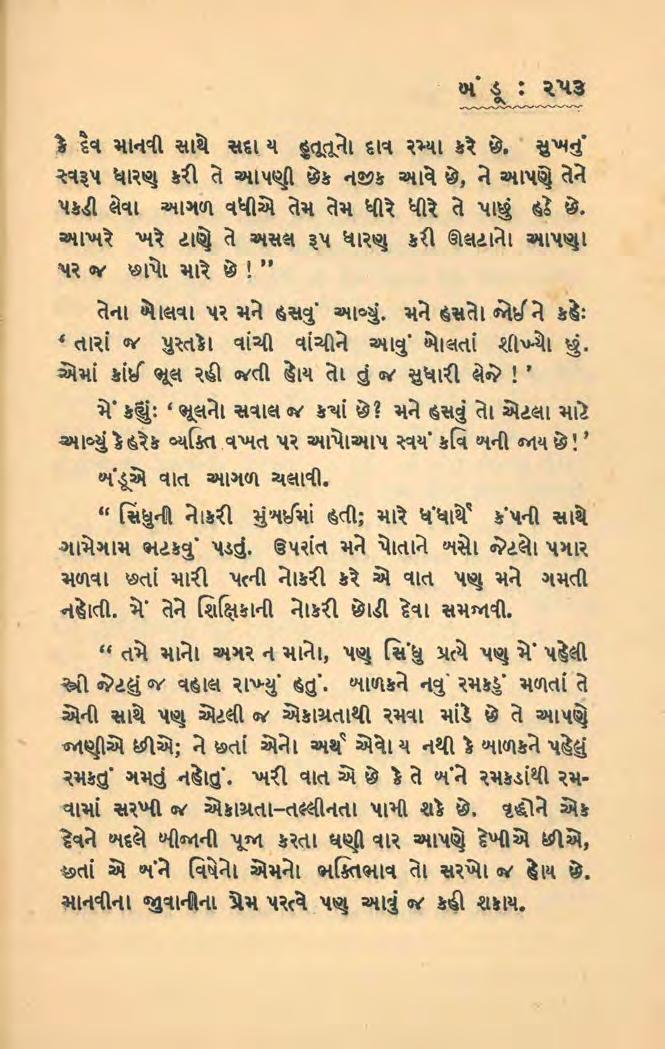 બં ડૂ : ૨૫૩
કે દૈવ માનવી સાથે સદા ય હુતૂતૂનો દાવ રમ્યા કરે છે. સુખનું
સ્વરૂપ ધારણ કરી તે આપણી છેક નજીક આવે છે, ને આપણે તેને
પકડી લેવા આગળ વધીએ તેમ તેમ ધીરે ધીરે તે પાછું હઠે છે.
આખરે ખરે ટાણે તે અસલ રૂપ ધારણ કરી ઊલટાનો આપણા
પર જ છાપો મારે છે ! ”
તેના બોલવા પર મને હસવું આવ્યું. મને હસતો જોઈ ને કહેઃ
‘ તારાં જ પુસ્તકો વાંચી વાંચીને આવું બોલતાં શીખ્યો છું.
એમાં કાંઈ ભૂલ રહી જતી હોય તો તું જ સુધારી લેજે ! ’
મેં કહ્યુંઃ ‘ ભૂલનો સવાલ જ કયાં છે? મને હસવું તો એટલા માટે
આવ્યું કે હરેક વ્યક્તિ વખત પર આપોઆપ સ્વયં કવિ બની જાય છે! ’
બંડૂએ વાત આગળ ચલાવી.
“ સિંધુની નોકરી મુંબઈમાં હતી; મારે ધંધાર્થે કંપની સાથે
ગામેગામ ભટકવું પડતું. ઉપરાંત મને પોતાને બસો જેટલો પગાર
મળવા છતાં મારી પત્ની નોકરી કરે એ વાત પણ મને ગમતી
નહોતી. મેં તેને શિક્ષિકાની નોકરી છોડી દેવા સમજાવી.
“ તમે માનો અગર ન માનો, પણ સિંધુ પ્રત્યે પણ મેં પહેલી
સ્ત્રી જેટલું જ વહાલ રાખ્યું હતું. બાળકને નવું રમકડું મળતાં તે
એની સાથે પણ એટલી જ એકાગ્રતાથી રમવા માંડે છે તે આપણે
જાણીએ છીએ; ને છતાં એનો અર્થ એવો ય નથી કે બાળકને પહેલું
રમકતું ગમતું નહોતું. ખરી વાત એ છે કે તે બંને રમકડાંથી રમ-
વામાં સરખી જ એકાગ્રતા–તલ્લીનતા પામી શકે છે. વૃદ્ધોને એક
દેવને બદલે બીજાની પૂજા કરતા ઘણી વાર આપણે દેખીએ છીએ,
છતાં એ બંને વિષેનો એમનો ભક્તિભાવ તો સરખો જ હોય છે.
માનવીના જુવાનીના પ્રેમ પરત્વે પણ આવું જ કહી શકાય.